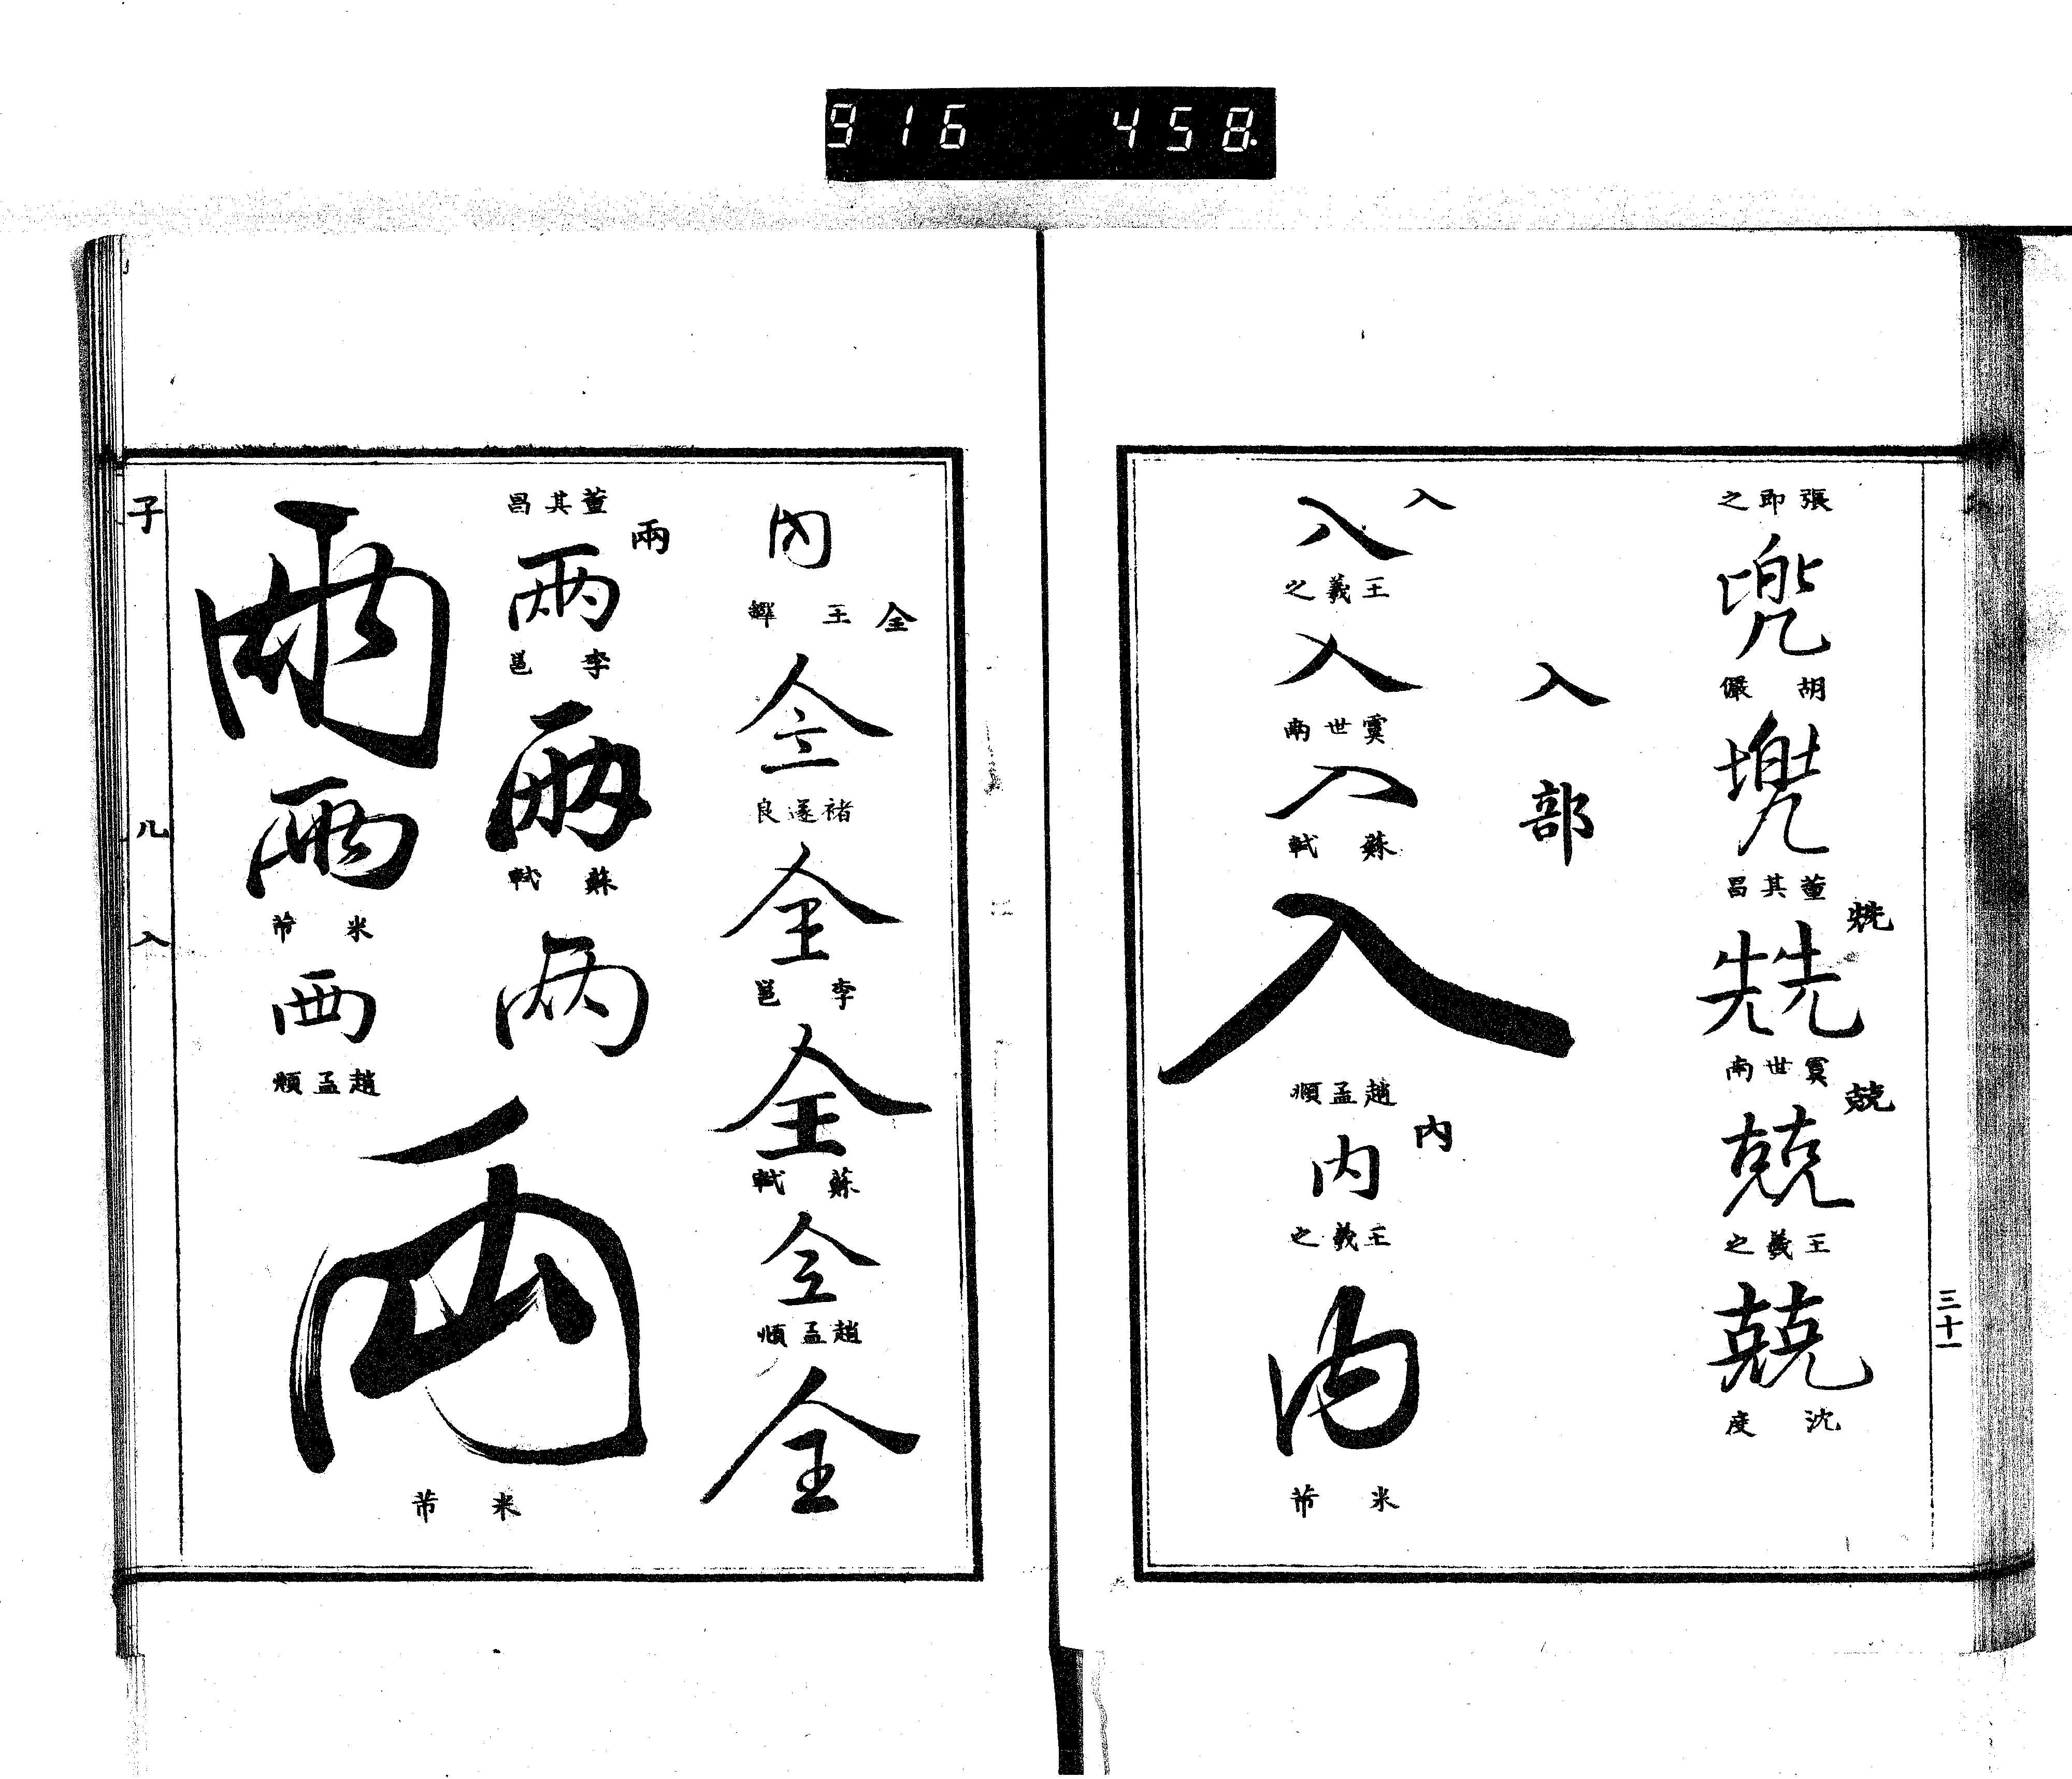 916 458
三十一
張即之
兜
胡儼
兜
董其昌
兟
兟
虞世南
兢
兢
王羲之
兢
沈度
入部
入
入
王羲之
入
虞世南
入
蘇軾
入
趙孟頫
內
内
王羲之
内
米芾
内
王
全
全
褚遂良
全
李邕
全
蘇軾
全
趙孟頫
全
董其昌
兩
兩
李邕
兩
蘇軾
兩
兩
兩
米芾
兩
趙孟頫
兩
米芾
子 儿 入